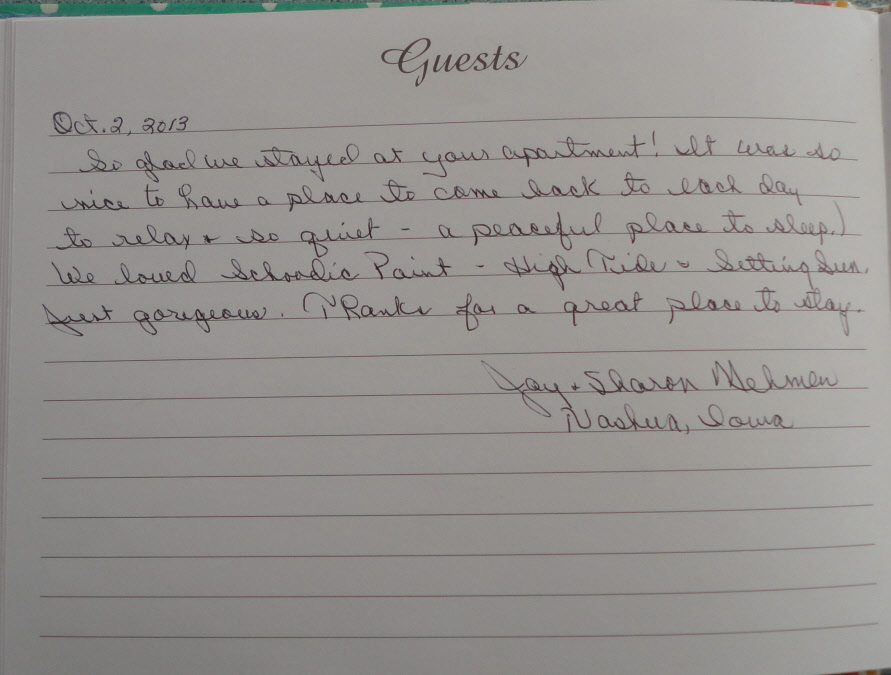 Guests
Oct. 2, 2013
So glad we stayed at your apartment! It was so
nice to have a place to come back to each day
to relax & so quiet - a peaceful place to sleep.)
We loved Schoodic Point - High Tide & Setting Sun.
Just gorgeous. Thanks for a great place to stay.
Jay & Sharon Mehmen
Nashua, Iowa